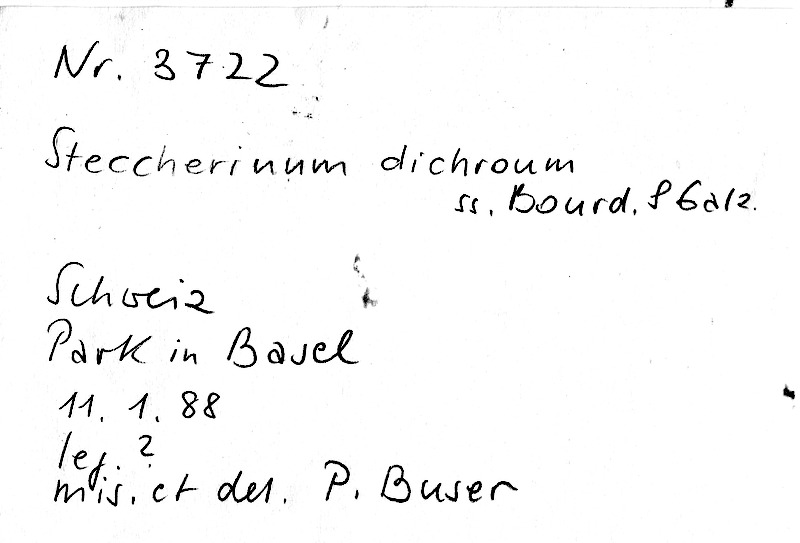 Nr. 3722
Steccherinum dichroum
ss. Bourd. & Galz.
Schweiz
Park in Basel
11. 1. 88
leg. ?
mis. et det. P. Buser